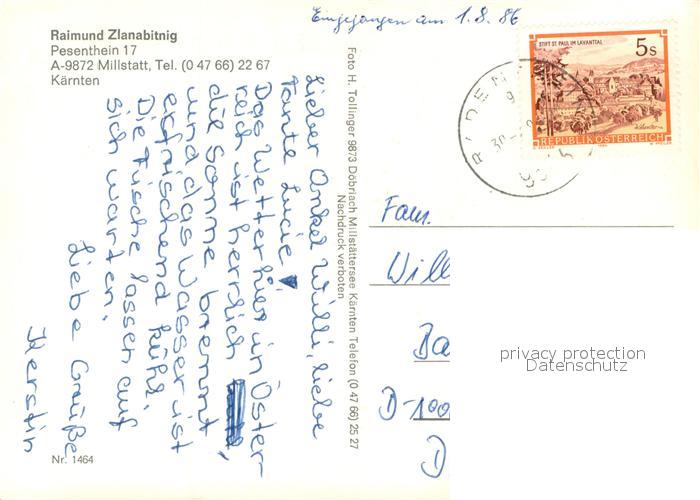 Eingegangen am 1.8.86
Raimund Zlanabitnig
Pesenthein 17
A-9872 Millstatt, Tel. (0 47 66) 22 67
Kärnten
Lieber Onkel Willi, liebe
Tante Lucie!
Das Wetter hier in Öster-
reich ist herrlich,
die Sonne brennt
und das Wasser ist
erfrischend kühl.
Die Fische lassen auf
sich warten.
Liebe Grüße
Kerstin
Nr. 1464
Foto H. Tollinger 9873 Döbriach Millstättersee Kärnten Telefon (0 47 66) 25 27
Nachdruck verboten
STIFT ST. PAUL IM LAVANTTAL
5 s
REPUBLIK ÖSTERREICH
Fam.
Will
Ba
D-100
D
privacy protection
Datenschutz